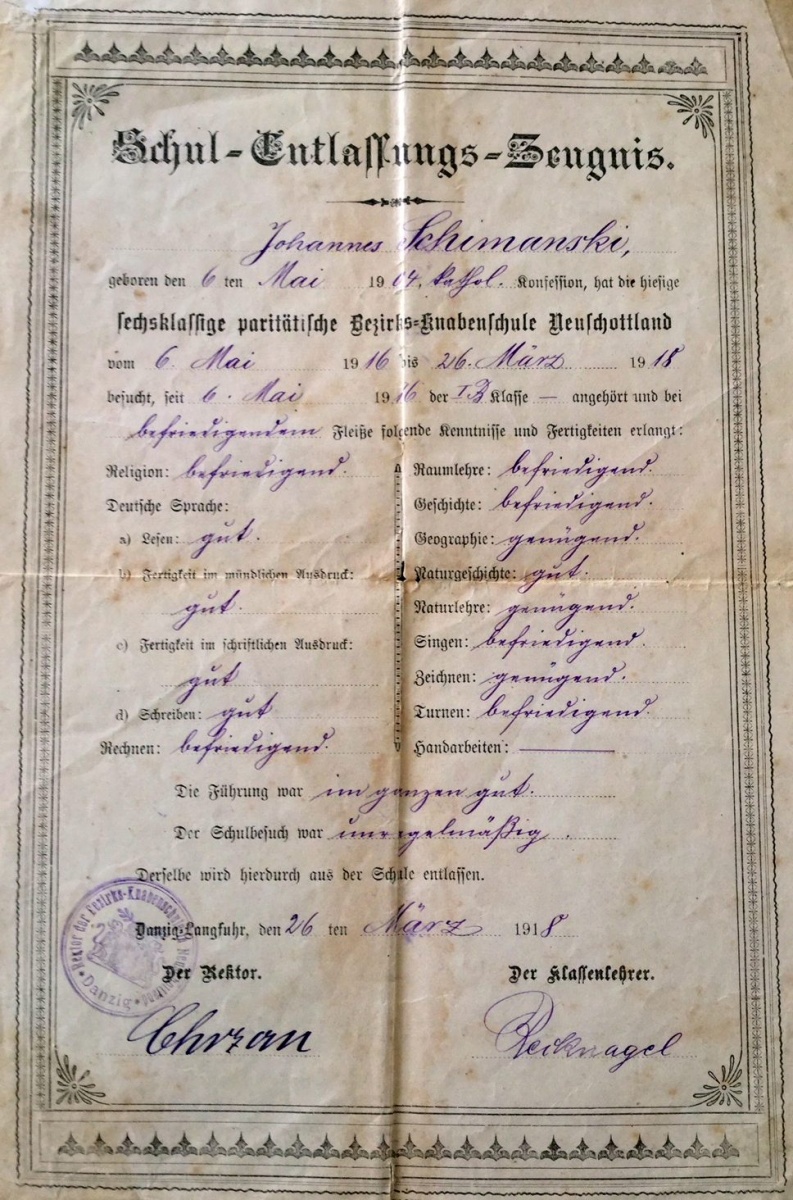 Schul-Entlassungs-Zeugnis.
Johannes Schimanski,
geboren den 6 ten Mai 1904, kathol. Konfession, hat die hiesige
sechsklassige paritätische Bezirks-Knabenschule Neuschottland
vom 6. Mai 1916 bis 26. März 1918
besucht, seit 6. Mai 1916 der I.B Klasse — angehört und bei
befriedigendem Fleiße folgende Kenntnisse und Fertigkeiten erlangt:
Religion: befriedigend.
Deutsche Sprache:
a) Lesen: gut.
b) Fertigkeit im mündlichen Ausdruck:
gut.
c) Fertigkeit im schriftlichen Ausdruck:
gut
d) Schreiben: gut
Rechnen: befriedigend.
Raumlehre: befriedigend.
Geschichte: befriedigend.
Geographie: genügend.
Naturgeschichte: gut.
Naturlehre: genügend.
Singen: befriedigend.
Zeichnen: genügend.
Turnen: befriedigend.
Handarbeiten: ———
Die Führung war im ganzen gut.
Der Schulbesuch war unregelmäßig.
Derselbe wird hierdurch aus der Schule entlassen.
Danzig-Langfuhr, den 26 ten März 1918
Der Rektor.
Der Klassenlehrer.
Chrzan
Recknagel
Rektor der Bezirks-Knabenschule Neuschottland
Danzig